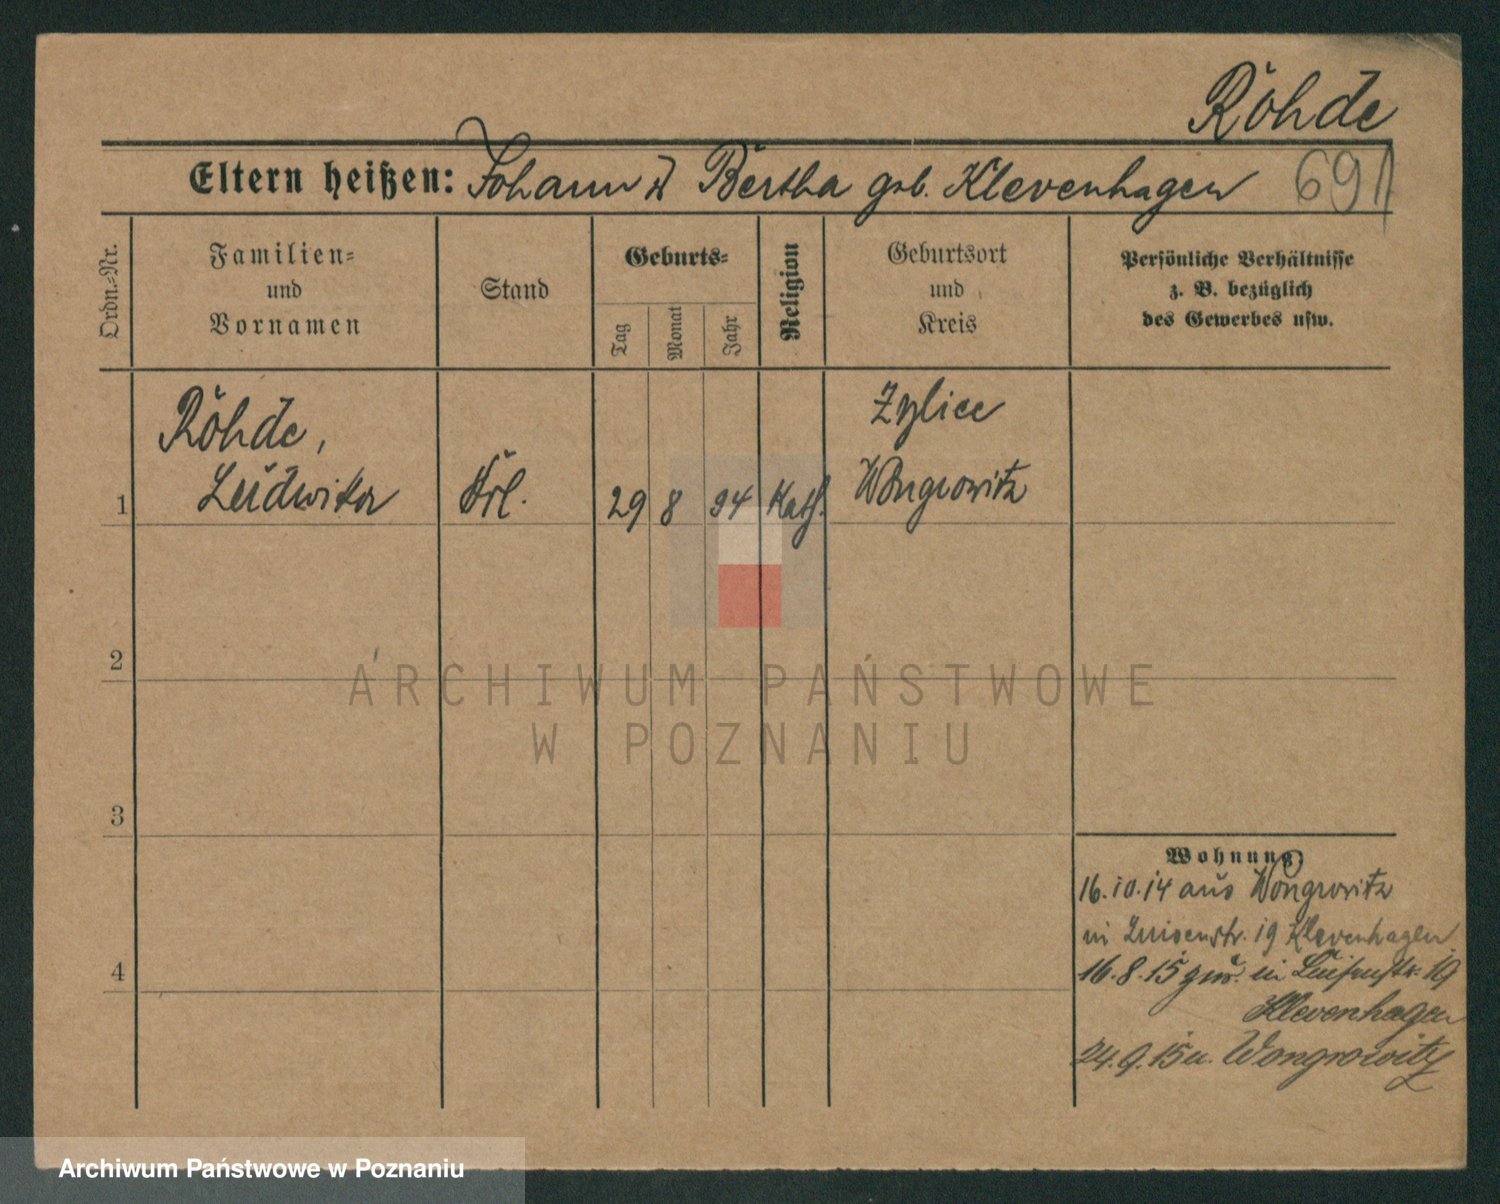 Röhde
Eltern heißen: Johann u Bertha geb. Klevenhagen 691
Ordn.-Nr.
Familien-
und
Vornamen
Stand
Geburts-
Tag
Monat
Jahr
Religion
Geburtsort
und
Kreis
Persönliche Verhältnisse
z. B. bezüglich
des Gewerbes usw.
Röhde,
Ludwika
1
Frl.
29 8 94 Kath.
Zylice
Wongrowitz
2
ARCHIWUM PAŃSTWOWE
W POZNANIU
3
Wohnung
16.10.14 aus Wongrowitz
in Luisenstr. 19 Klevenhagen
16.8.15 in Luisenstr. 19
Klevenhagen
24.9.15 n. Wongrowitz
4
Archiwum Państwowe w Poznaniu